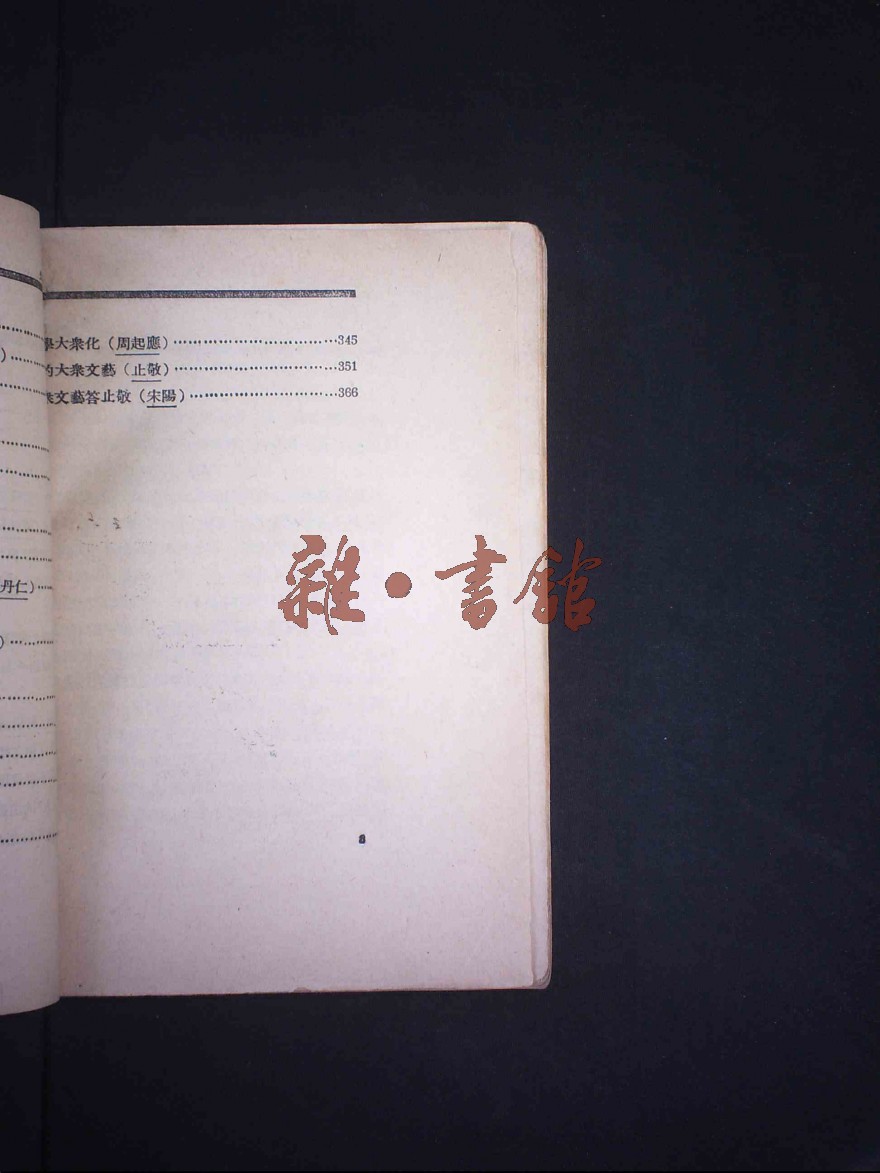 學大衆化（周起應）………………………………345
的大衆文藝（止敬）………………………………351
衆文藝答止敬（宋陽）……………………………366
丹仁）……
雜·書館
8